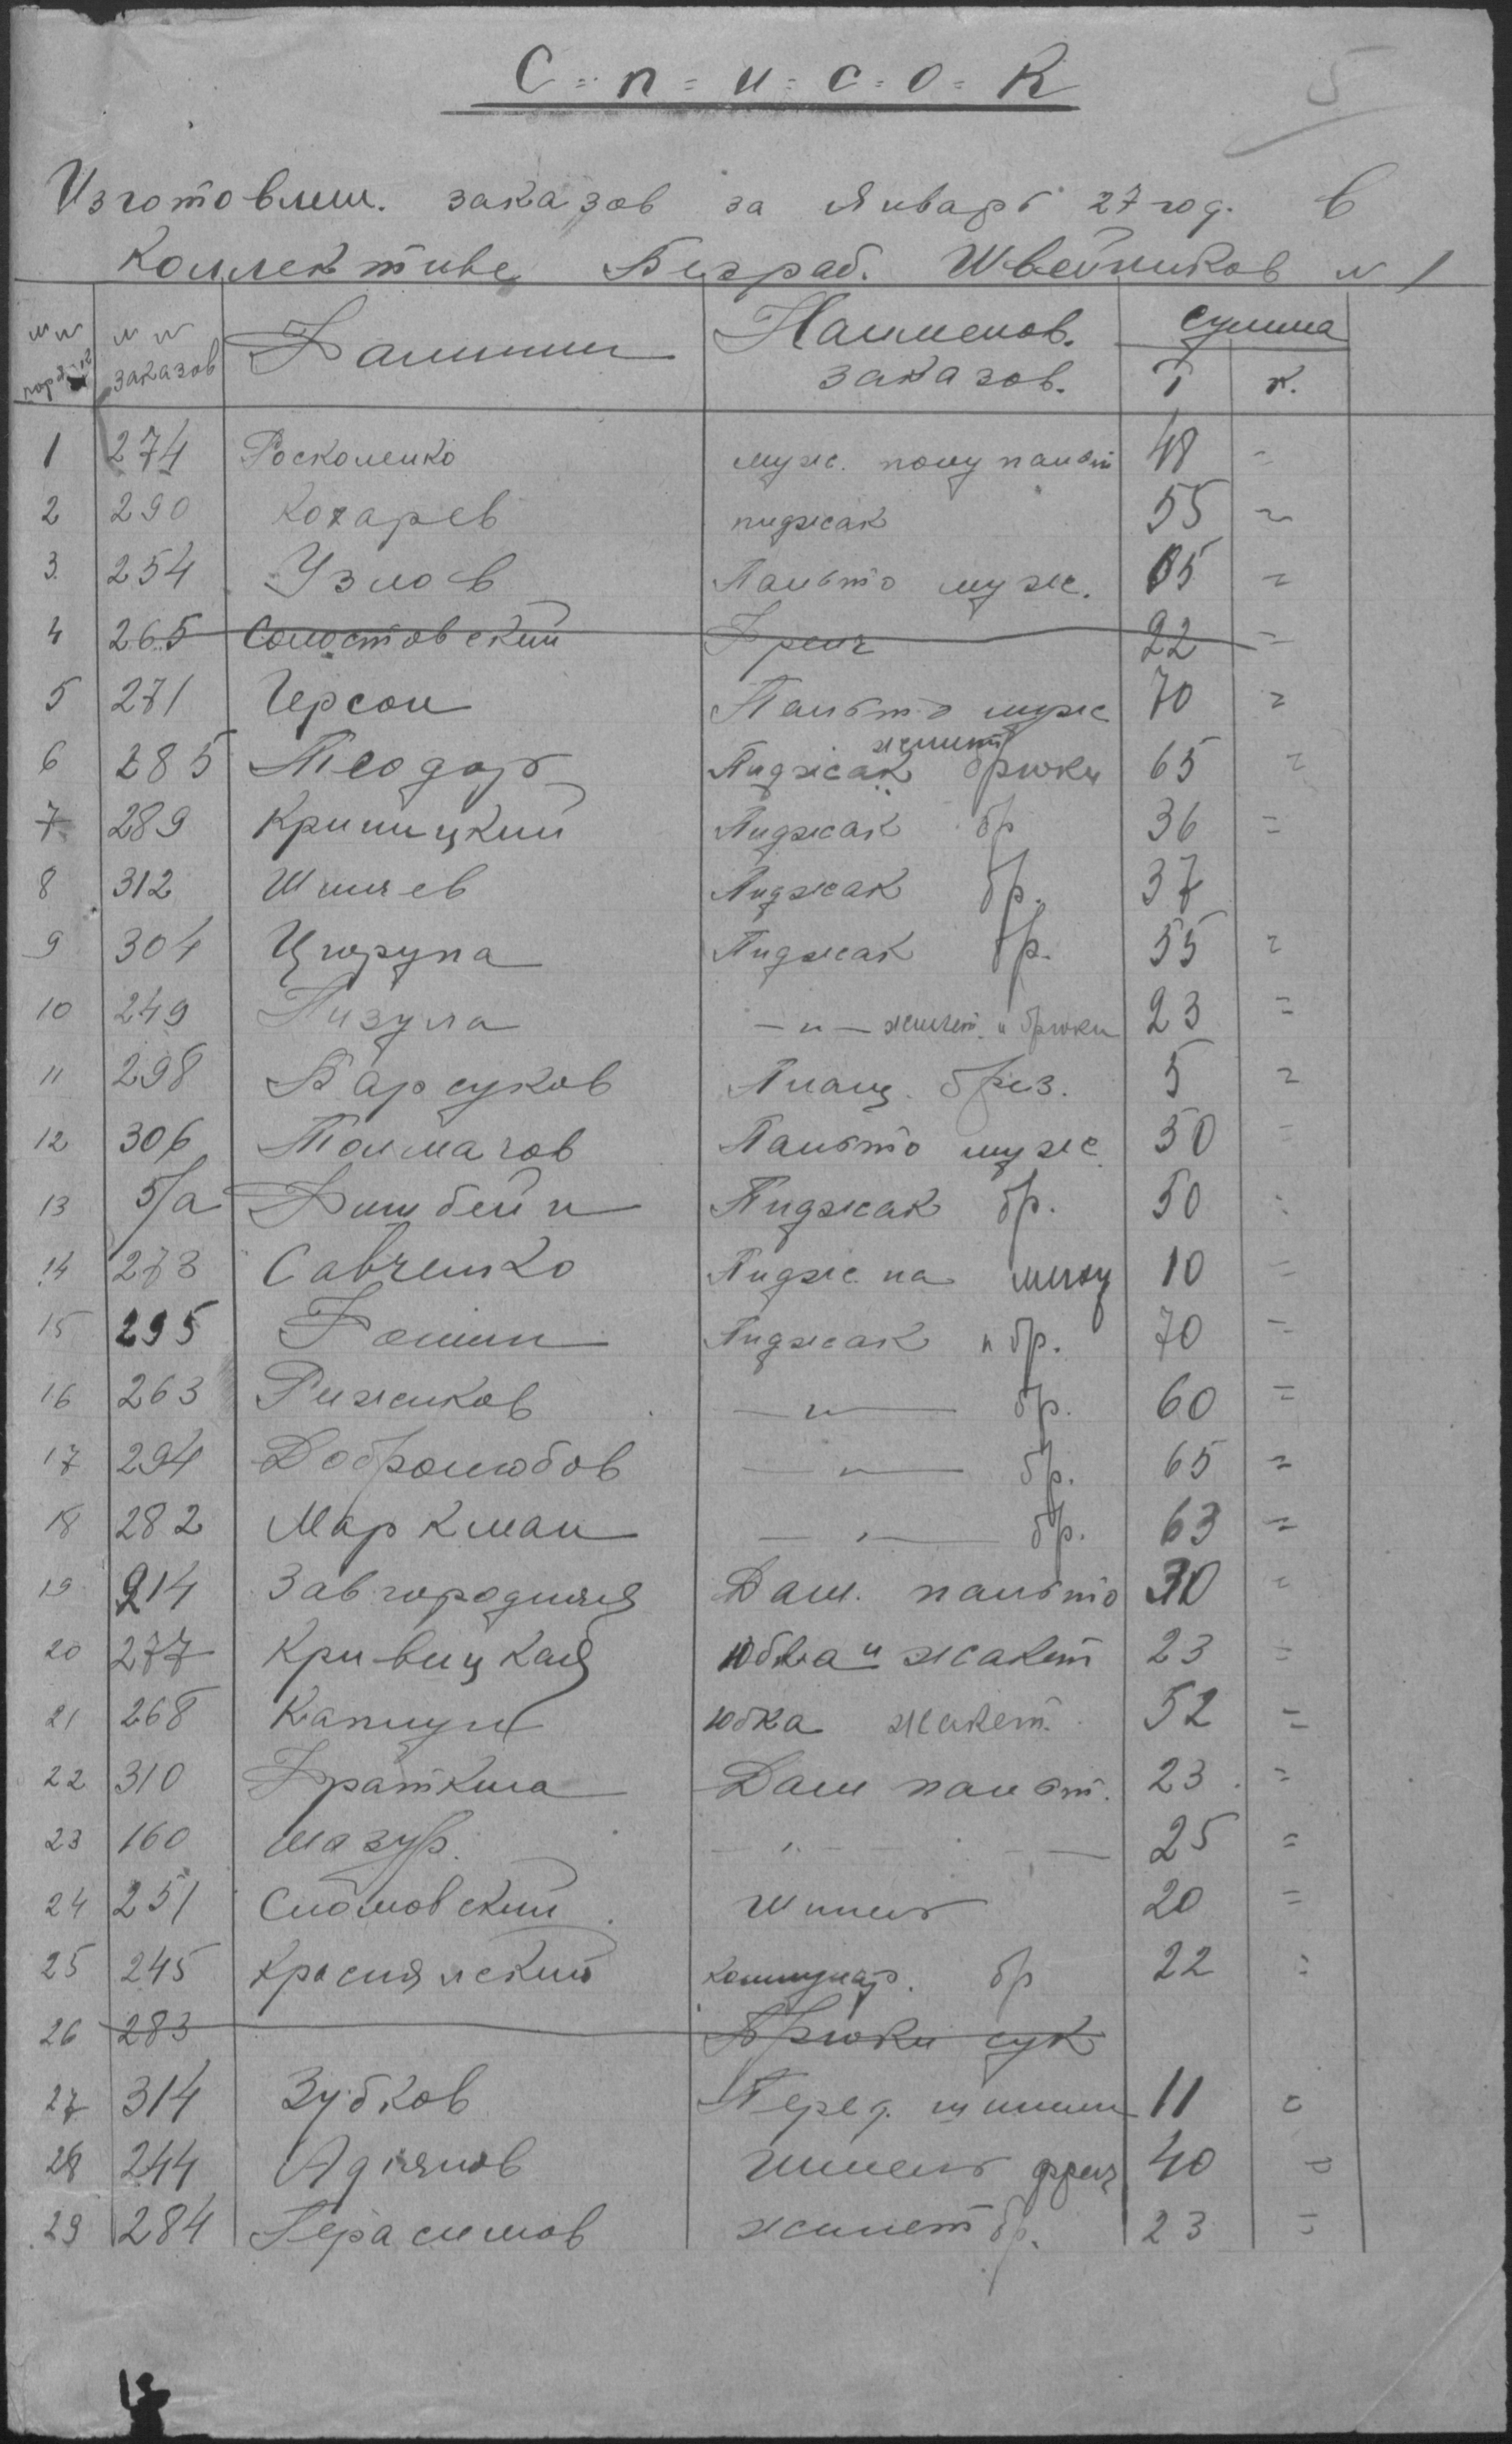 5
С=п=и=с=о=к
Изготовлен. заказов за Январь 27 год. в
Коллективе Безраб. Швейников № 1
№№ пор. №№ заказов Фамилии Наименов. заказов. сумма Р к.
1 274 Росколенко муж. полупальт 48 =
2 290 Кохарев пиджак 55 =
3. 254 Узлов Пальто муж. 65 =
4 265 Солостовский Френч 22 =
5 271 Герсон Пальто муж 70 =
6 285 Теодор Пиджак жилет брюки 65 =
7 289 Криницкий Пиджак бр 36 =
8 312 Шпилев Пиджак бр. 37
9 304 Цюрупа Пиджак бр. 55 =
10 249 Гизула —"— жилет. и брюки 23 =
11 298 Барсуков Плащ. брез. 5 =
12 306 Толмачов Пальто муж 50 =
13 5/а Фишбейн Пиджак бр. 50 =
14 273 Савченко Пидж. на меху 10 =
15 295 Фомин Пиджак и бр. 70 =
16 263 Рижиков —"— бр. 60 =
17 294 Добролюбов —"— бр. 65 =
18 282 Маркман —"— бр. 63 =
19 214 Завгородняя Дам. пальто 30 =
20 277 Кривицкая Юбка и жакет 23 =
21 268 Капцун юбка жакет. 52 =
22 310 Фраткина Дам пальт. 23 =
23 160 Мазур. —"— 25 =
24 251 Сломовский Шинель 20 =
25 245 Краснянский коммунар. бр 22 =
26 283 Брюки сук
27 314 Зубков Перед. шинели 11 =
28 244 Адпянов Шинель френч 40 =
29 284 Герасимов жилет бр. 23 =